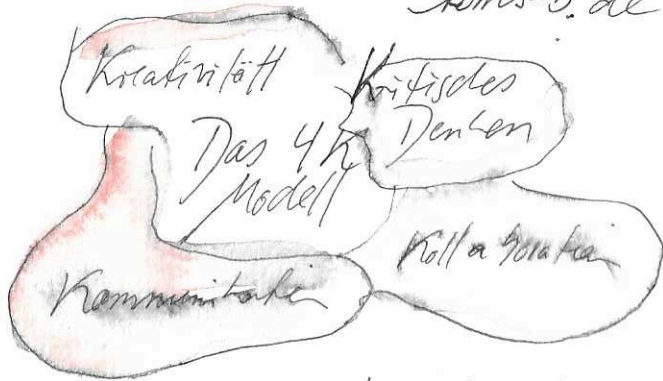 Kreativität
Kritisches
Denken
Das 4K
Modell
Kollaboration
Kommunikation